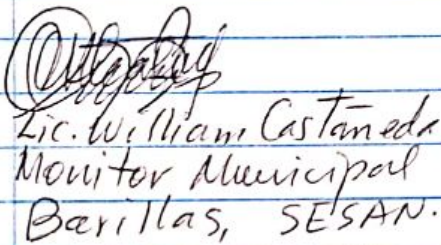 Lic. William Castañeda
Monitor Municipal
Barillas, SESAN.